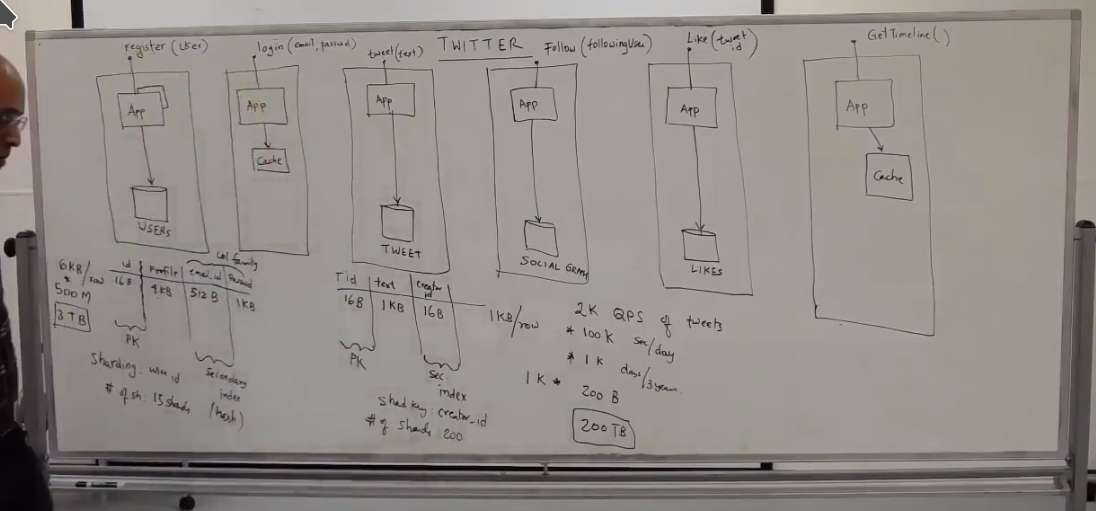 TWITTER
register (user)
App
USERS
login (email, passwd)
App
Cache
tweet(text)
App
TWEET
Follow (followingUser)
App
SOCIAL GRAPH
Like (tweet id)
App
LIKES
GetTimeline()
App
Cache
6KB/row
*
500M
3 TB
Col family
id
Profile
email, id
16B
4KB
512 B
1KB
PK
Secondary
index
(hash)
Sharding: user id
# of sh: 15 shards
Tid
text
creator
id
16B
1KB
16B
1KB/row
PK
Sec.
index
Shard key: creator_id
# of shards 200
2K QPS of tweets
* 100K sec/day
* 1K days/3years
1K *
200 B
200 TB